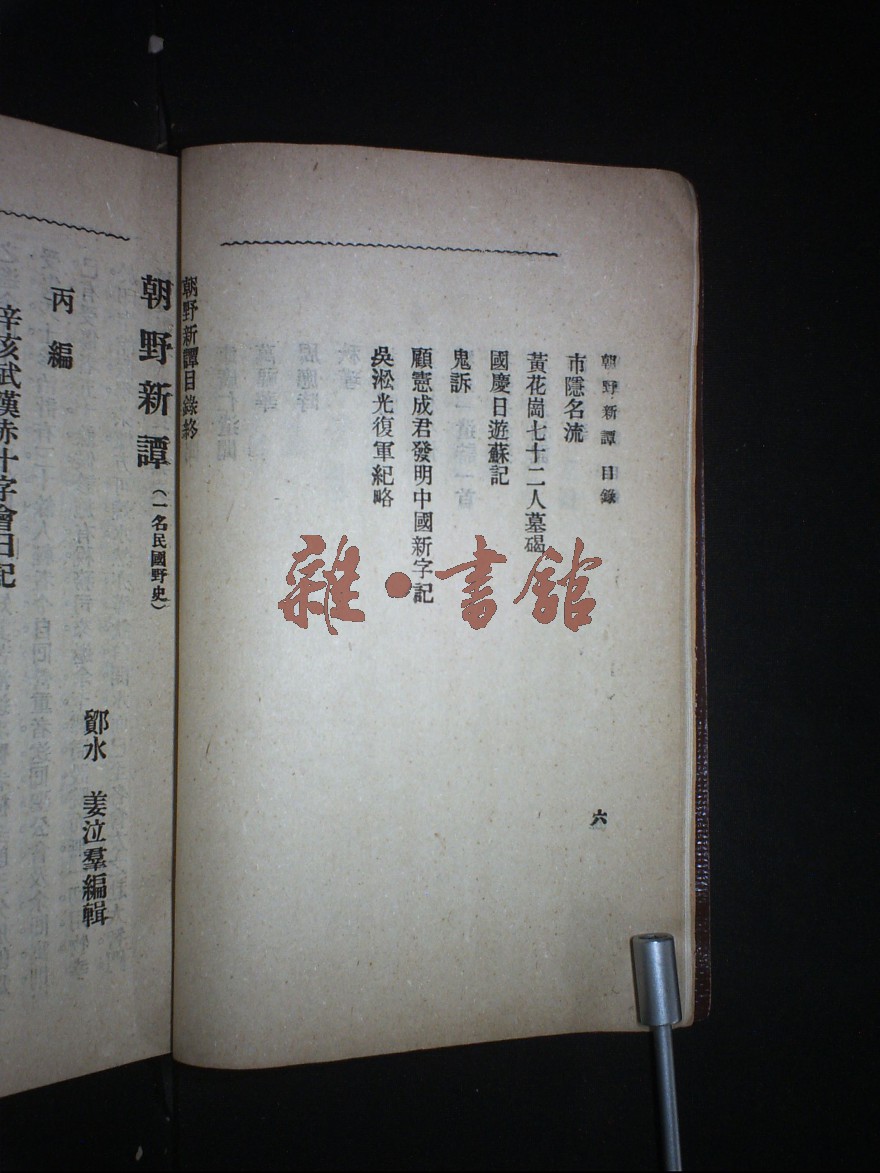 朝野新譚 目錄
六
市隱名流
黃花崗七十二人墓碣
國慶日遊蘇記
鬼訴
顧憲成君發明中國新字記
吳淞光復軍紀略
朝野新譚目錄終
朝野新譚(一名民國野史)
鄮水 姜泣羣編輯
丙編
辛亥武漢赤十字會日記
雜·書館